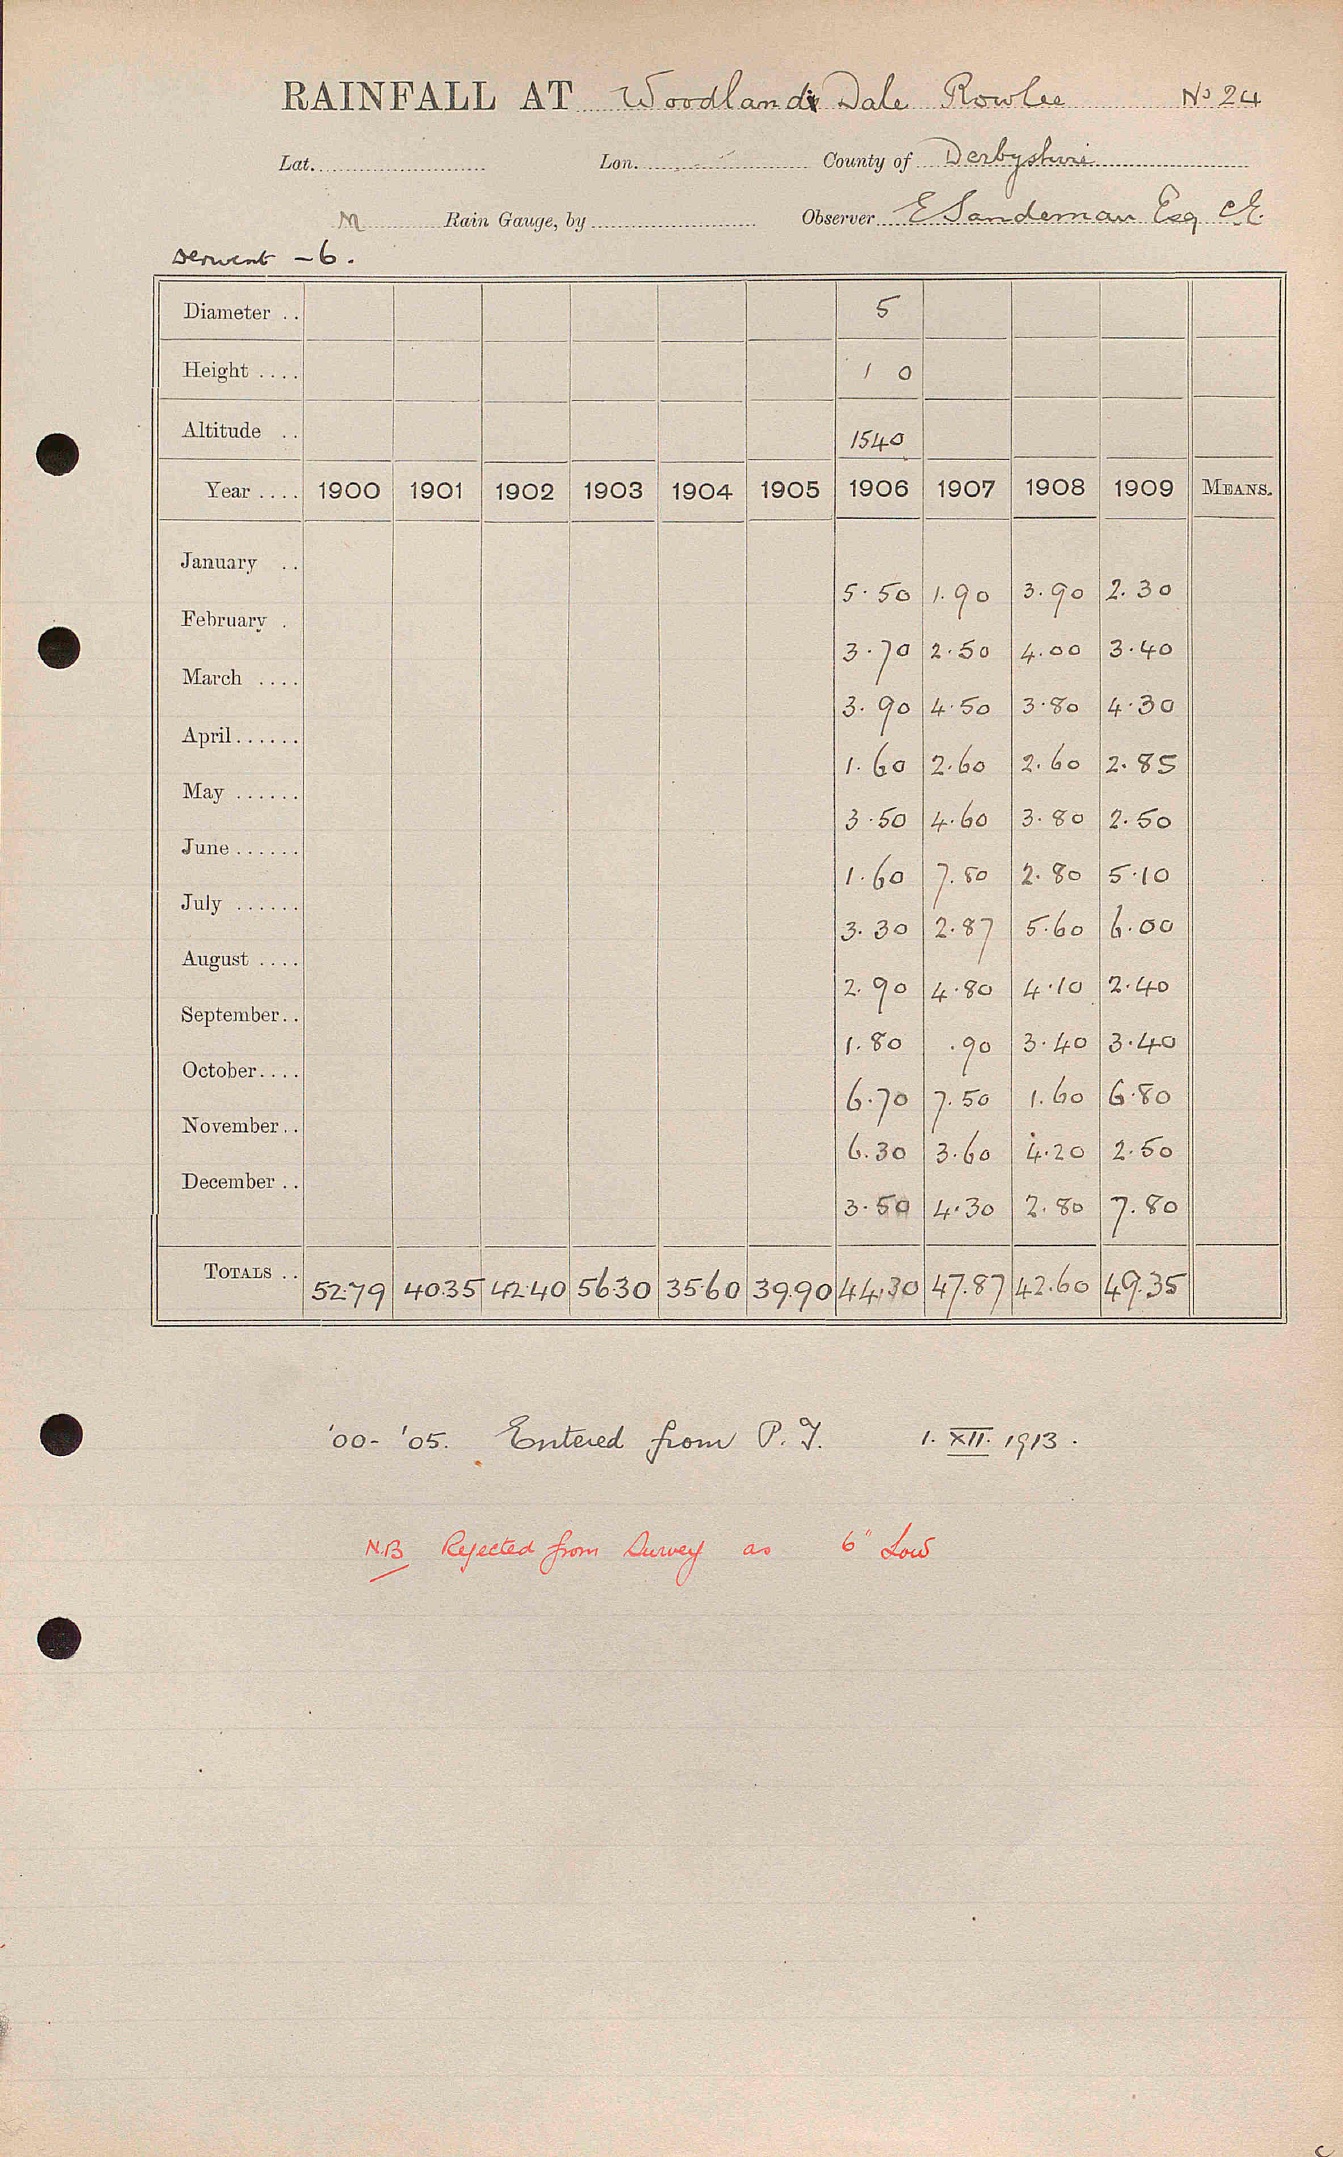 RAINFALL AT Woodlands Dale Rowlee No 24
Lat. Lon. County of Derbyshire
M Rain Gauge, by Observer E Sandeman Esq C.E.
Derwent - 6.
Diameter .. 5
Height .... 1 0
Altitude .. 1540
Year .... 1900 1901 1902 1903 1904 1905 1906 1907 1908 1909 MEANS.
January .. 5.50 1.90 3.90 2.30
February . 3.70 2.50 4.00 3.40
March .... 3.90 4.50 3.80 4.30
April...... 1.60 2.60 2.60 2.85
May ...... 3.50 4.60 3.80 2.50
June ...... 1.60 7.80 2.80 5.10
July ...... 3.30 2.87 5.60 6.00
August .... 2.90 4.80 4.10 2.40
September.. 1.80 .90 3.40 3.40
October.... 6.70 7.50 1.60 6.80
November.. 6.30 3.60 4.20 2.50
December .. 3.50 4.30 2.80 7.80
TOTALS .. 52.79 40.35 42.40 56.30 35.60 39.90 44.30 47.87 42.60 49.35
'00 - '05. Entered from P. T. 1. XII. 1913.
N.B Rejected from Survey as 6" Low